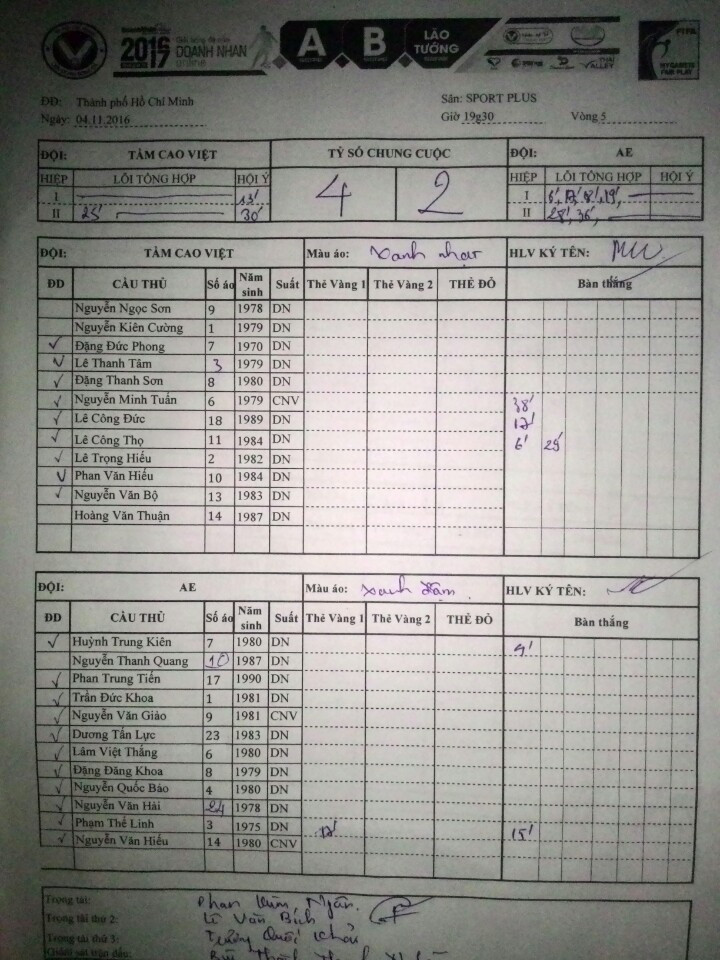 2016
2017
DOANH NHÂN
A B LÃO TƯỚNG
FIFA
MY GAME IS FAIR PLAY
ĐĐ: Thành phố Hồ Chí Minh Sân: SPORT PLUS
Ngày: 04.11.2016 Giờ 19g30 Vòng 5
ĐỘI: TẦM CAO VIỆT TỶ SỐ CHUNG CUỘC ĐỘI: AE
HIỆP LỖI TỔNG HỢP HỘI Ý 4 2 HIỆP LỖI TỔNG HỢP HỘI Ý
I 13' I 6', 12', 18', 19',
II 25' 30' II 28', 36',
ĐỘI: TẦM CAO VIỆT Màu áo: Xanh nhạt HLV KÝ TÊN:
ĐD CẦU THỦ Số áo Năm sinh Suất Thẻ Vàng 1 Thẻ Vàng 2 THẺ ĐỎ Bàn thắng
Nguyễn Ngọc Sơn 9 1978 DN
Nguyễn Kiên Cường 1 1979 DN
✓ Đặng Đức Phong 7 1970 DN
✓ Lê Thanh Tâm 3 1979 DN
✓ Đặng Thanh Sơn 8 1980 DN
✓ Nguyễn Minh Tuấn 6 1979 CNV 38'
✓ Lê Công Đức 18 1989 DN 12'
✓ Lê Công Thọ 11 1984 DN 6' 25'
✓ Lê Trọng Hiếu 2 1982 DN
✓ Phan Văn Hiếu 10 1984 DN
✓ Nguyễn Văn Bộ 13 1983 DN
Hoàng Văn Thuận 14 1987 DN
ĐỘI: AE Màu áo: xanh đậm HLV KÝ TÊN:
ĐD CẦU THỦ Số áo Năm sinh Suất Thẻ Vàng 1 Thẻ Vàng 2 THẺ ĐỎ Bàn thắng
✓ Huỳnh Trung Kiên 7 1980 DN 9'
Nguyễn Thanh Quang 10 1987 DN
✓ Phan Trung Tiến 17 1990 DN
✓ Trần Đức Khoa 1 1981 DN
✓ Nguyễn Văn Giào 9 1981 CNV
✓ Dương Tấn Lực 23 1983 DN
✓ Lâm Việt Thắng 6 1980 DN
✓ Đặng Đăng Khoa 8 1979 DN
✓ Nguyễn Quốc Bảo 4 1980 DN
✓ Nguyễn Văn Hải 24 1978 DN
✓ Phạm Thế Linh 3 1975 DN 12' 15'
✓ Nguyễn Văn Hiếu 14 1980 CNV
Trọng tài: Phan
Trọng tài thứ 2: Lê Văn Bích
Trọng tài thứ 3: Trương Quốc
Giám sát trận đấu: